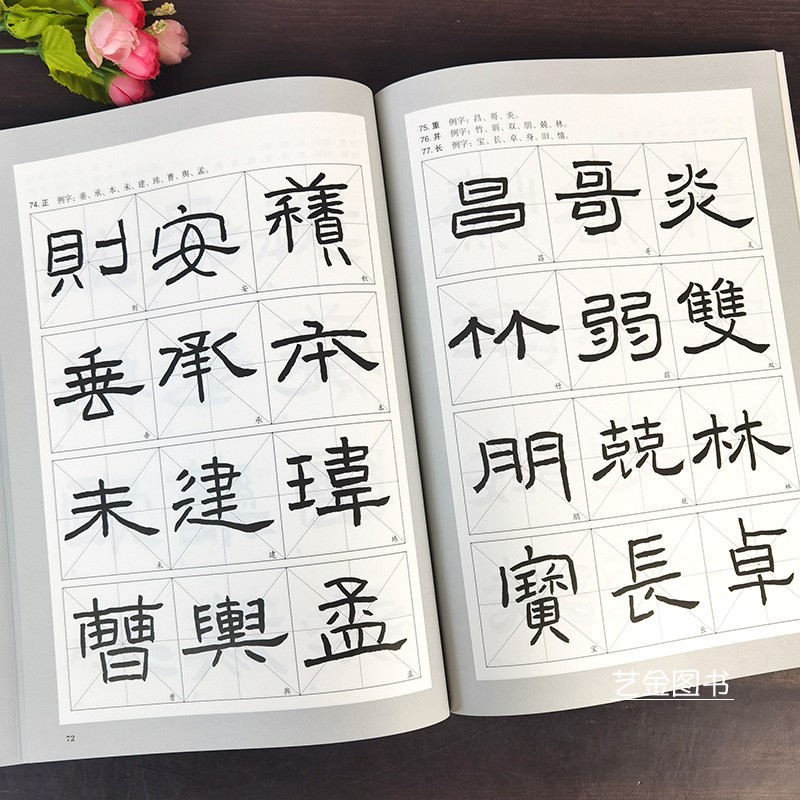 74. 正 例字：垂、承、本、未、建、玮、曹、舆、孟。
則 安 積
则 安 积
垂 承 本
垂 承 本
未 建 瑋
未 建 玮
曹 輿 孟
曹 舆 孟
72
75. 重 例字：昌、哥、炎。
76. 并 例字：竹、弱、双、朋、兢、林。
77. 长 例字：宝、长、卓、身、旧、禧。
昌 哥 炎
昌 哥 炎
竹 弱 雙
竹 弱 双
朋 兢 林
朋 兢 林
寶 長 卓
宝 长
艺金图书